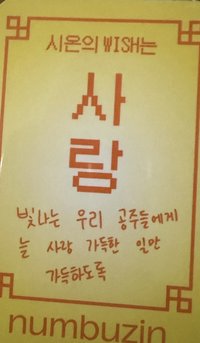 시온의 WISH는
사
랑
빛나는 우리 공주들에게
늘 사랑 가득한 일만
가득하도록
numbuzin